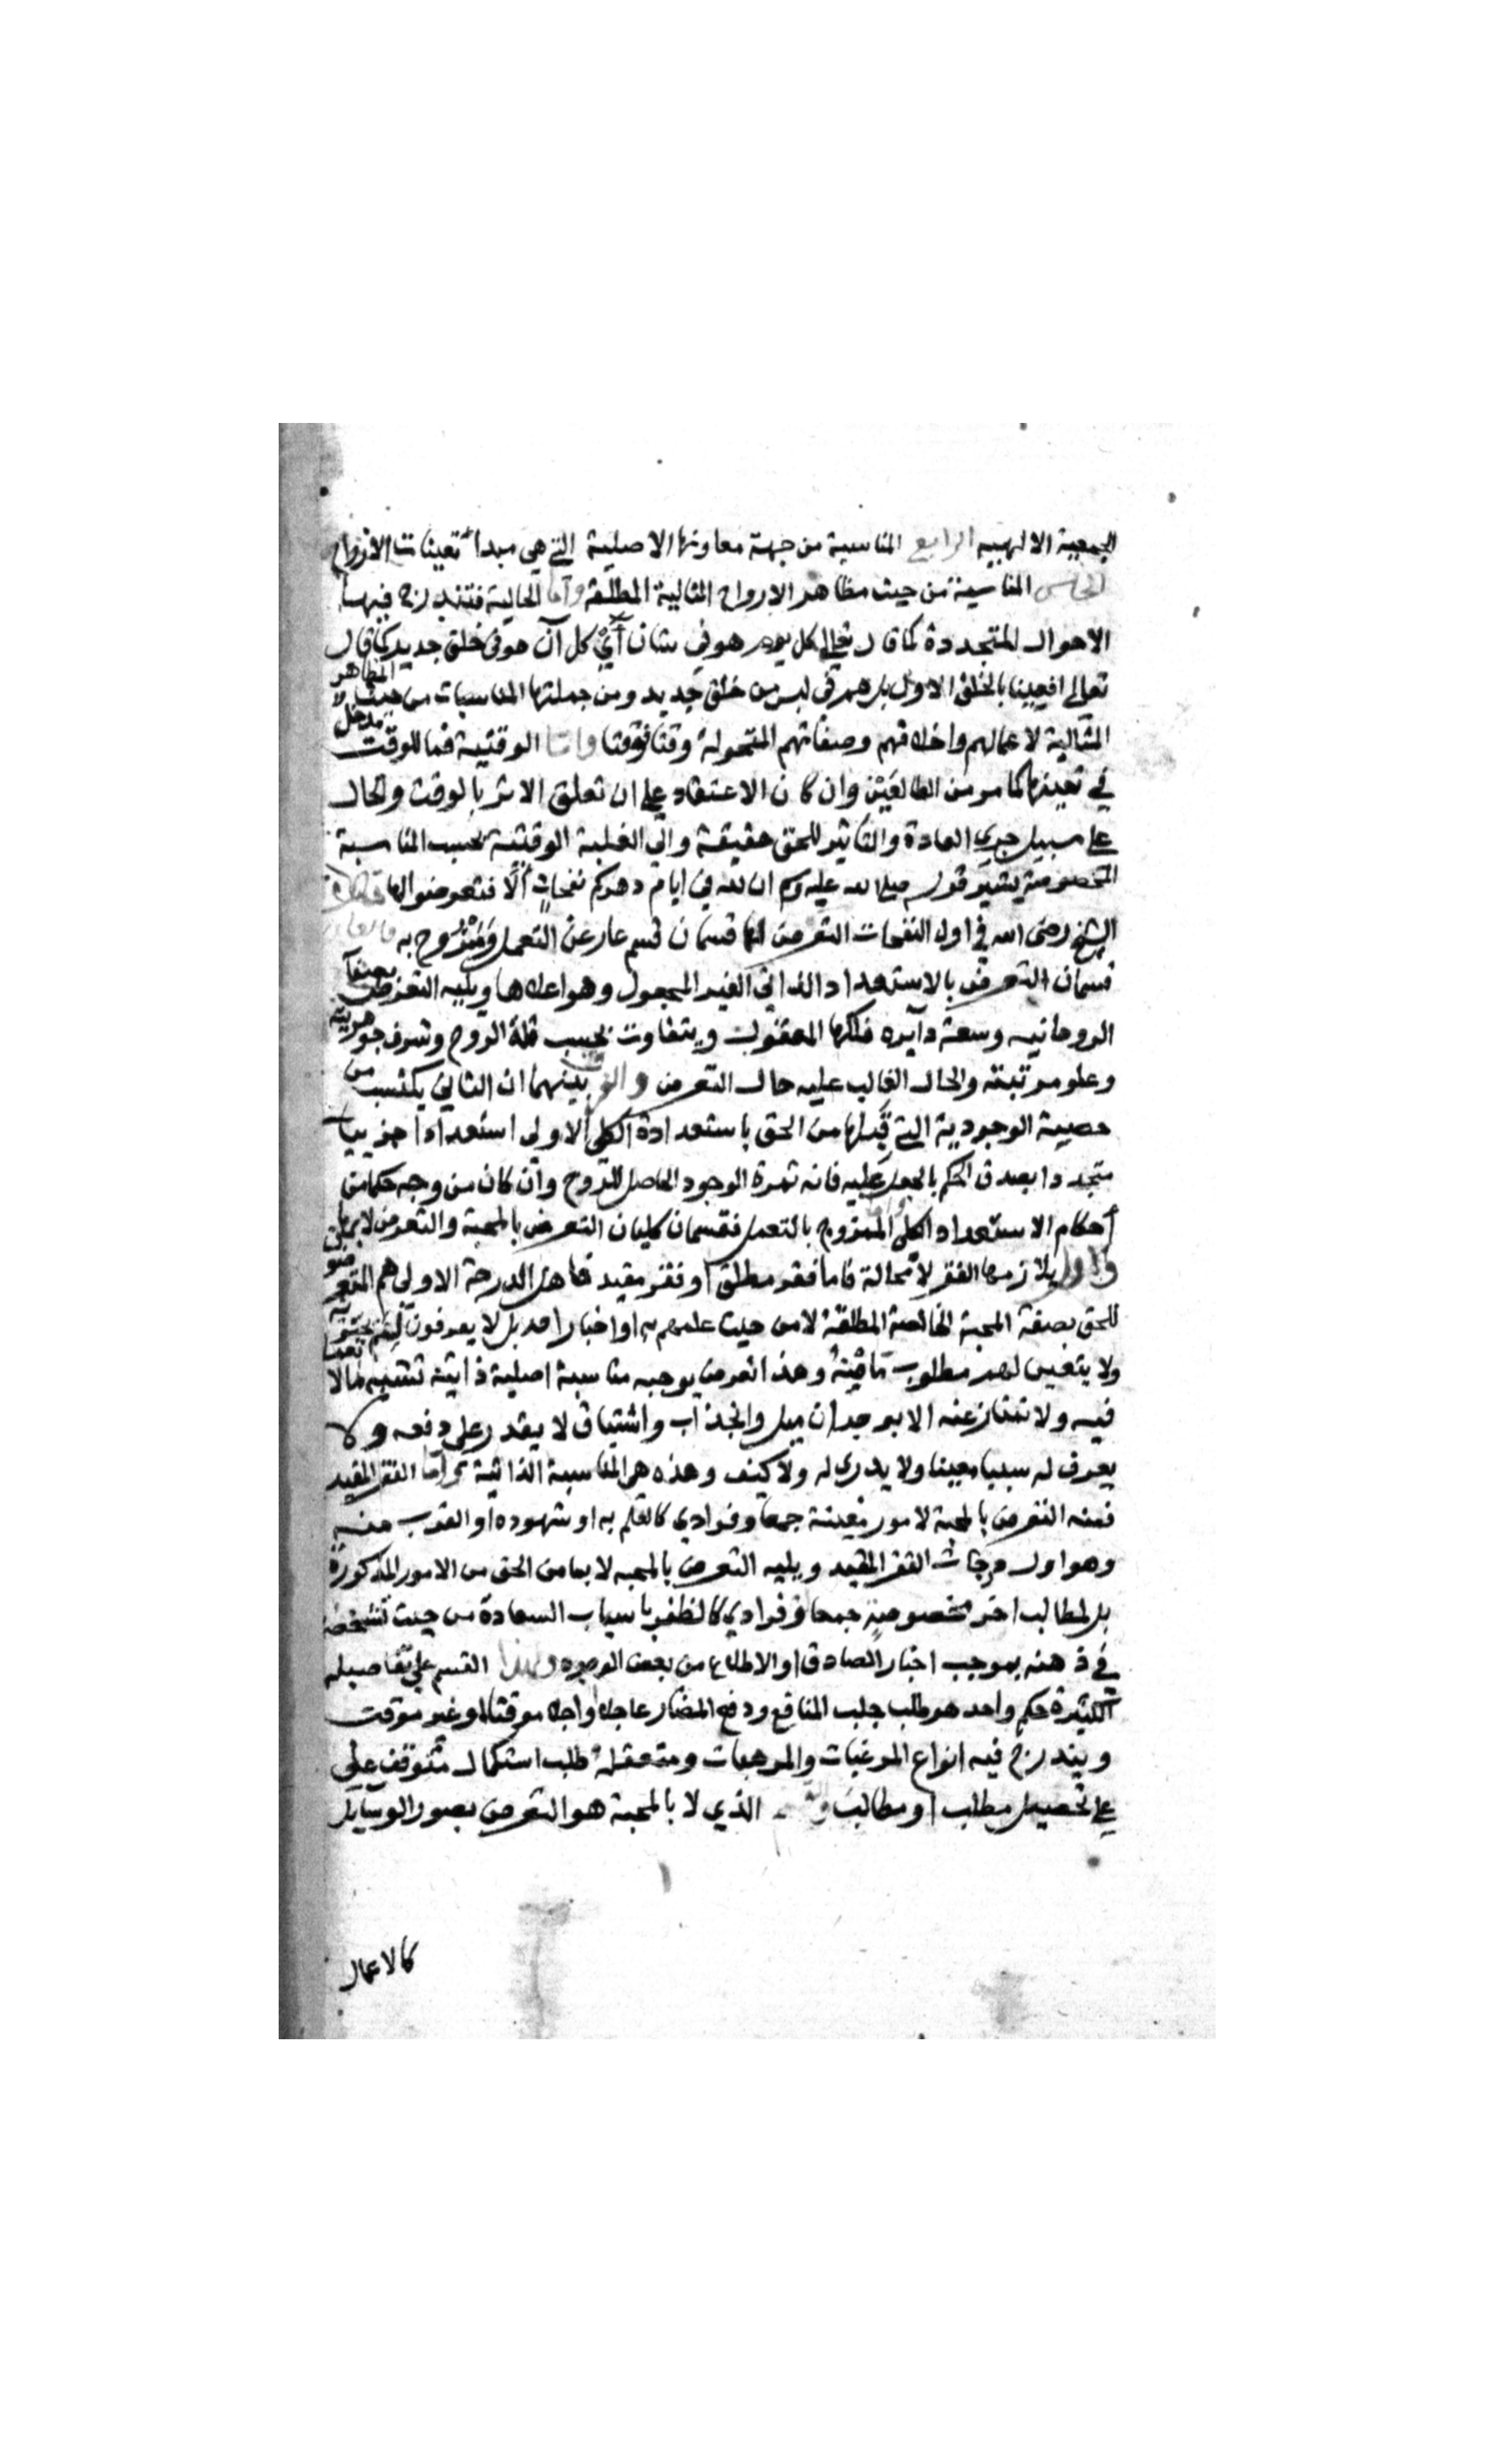 الجمعية الالهيه الرابع المناسبة من جهة معاونها الاصلية التي هي مبدأ تعينات الارواح
الخامس المناسبة من حيث مظاهر الارواح المثالية المطلقة واما الحالية فتندرج فيها
الاحوال المتجددة كما قال تعالى كل يوم هو في شان أي كل آن هو في خلق جديد كما قال
تعالى افعيينا بالخلق الاول بل هم في لبس من خلق جديد ومن جملتها المناسبات من حيث المظاهر
المثالية لاعمالهم واخلاقهم وصفاتهم المتحولة وقتا فوقتا واما الوقتية فما للوقت مدخل
في تعينها كما مر من الطالعين وان كان الاعتقاد على ان تعلق الاثر بالوقت والحال
على سبيل جري العادة والتاثير للحق حقيقة والى الغلبة الوقتية بحسب المناسبة
المخصوصة يشير قوله صلى الله عليه وسلم ان لله في ايام دهركم نفحات ألا فتعرضوا لها
الشيخ رضى الله في اول النفحات التعرض لها قسمان قسم عار عن التعمل وممزوج به
قسمان التعرض بالاستعداد الذاتي الغير المجعول وهو اعلاها ويليه التعرض بصفاء
الروحانيه وسعة دآيره فلكها المعنوى ويتفاوت بحسب قلة الروح وشرف جوهريته
وعلو مرتبته والحال الغالب عليه حال التعرض والفرق بينهما ان الثاني يكتسب من
حصية الوجودية التي قبلها من الحق باستعداده الكلي الاولى استعدادا جزييا
متجددا بصدق الحكم بالجعل عليه فانه ثمرة الوجود الحاصل للروح وان كان من وجه حكما من
أحكام الاستعداد الكلي واما الممزوج بالتعمل فقسمان كليان التعرض بالمحبة والتعرض لا بها
والاول يلازمها الفقر لا محالة فاما فقر مطلق او فقر مقيد فاهل الدرجة الاولى هم المتعرضو
للحق بصفة المحبة الخالصة المطلقة لا من حيث علمهم به او اخبار احد بل لا يعرفون لم يحبونه
ولا يتعين لهم مطلوب ما منه وهذا تعرض يوجبه مناسبة اصلية ذاتية تقتضيه لا تعمل
فيه ولا تمتاز عنه الا بوجدان ميل وانجذاب واشتياق لا يقدر على دفعه ولا
يعرف له سببا معينا ولا يدرى له ولا كيف وهذه هي المناسبة الذاتية واما الفقر المقيد
فمنه التعرض بالمحبة لامور معينة جمعا وفرادي كالعلم به او شهوده او القرب منه
وهو اول درجات الفقر المقيد ويليه التعرض بالمحبه لا بما من الحق من الامور المذكورة
بل لمطالب اخر مخصوصة جمعا وفرادي كالظفر باسباب السعادة من حيث تشخصه
في ذهنه بموجب اخبار الصادق او الاطلاع من بعض الوجوه ولهذا القسم على تفاصيله
الكثيرة حكم واحد هو طلب جلب المنافع ودفع المضار عاجلا واجلا موقتا او غير موقت
ويندرج فيه انواع المرغبات والمرهبات ومتعقله طلب استكمال متوقف على
على تحصيل مطلب او مطالب الذي لا بالمحبة هو التعرض بصور الوسايل
كالاعمال